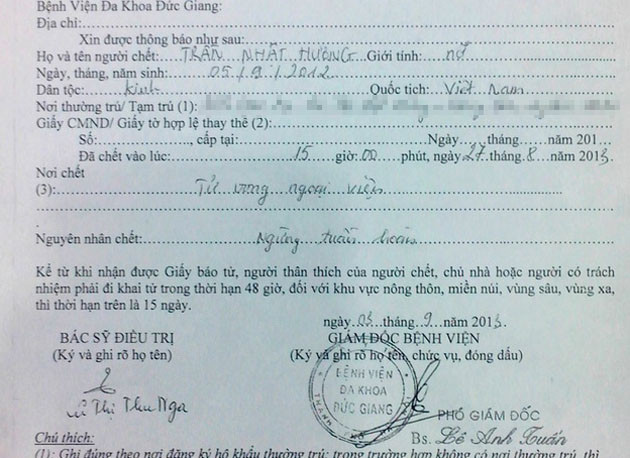 Bệnh Viện Đa Khoa Đức Giang:
Địa chỉ:
Xin được thông báo như sau:
Họ và tên người chết: TRẦN NHẬT HƯỜNG Giới tính: nữ
Ngày, tháng, năm sinh: 05/9/2012
Dân tộc: kinh Quốc tịch: Việt Nam
Nơi thường trú/ Tạm trú (1):
Giấy CMND/ Giấy tờ hợp lệ thay thế (2):
Số:, cấp tại: Ngày ... tháng ... năm 201...
Đã chết vào lúc: 15 giờ 00 phút, ngày 27 tháng 8 năm 2013
Nơi chết
(3): Tử vong ngoại viện
Nguyên nhân chết: Ngừng tuần hoàn
Kể từ khi nhận được Giấy báo tử, người thân thích của người chết, chủ nhà hoặc người có trách
nhiệm phải đi khai tử trong thời hạn 48 giờ, đối với khu vực nông thôn, miền núi, vùng sâu, vùng xa,
thì thời hạn trên là 15 ngày.
ngày 03 tháng 9 năm 2013.
BÁC SỸ ĐIỀU TRỊ GIÁM ĐỐC BỆNH VIỆN
(Ký và ghi rõ họ tên) (Ký và ghi rõ họ tên, chức vụ, đóng dấu)
BỆNH VIỆN
ĐA KHOA
ĐỨC GIANG
Lê Thị Thu Nga
PHÓ GIÁM ĐỐC
Bs. Lê Anh Tuấn
Chú thích:
(1): Ghi đúng theo nơi đăng ký hộ khẩu thường trú; trong trường hợp không có nơi thường trú, thì